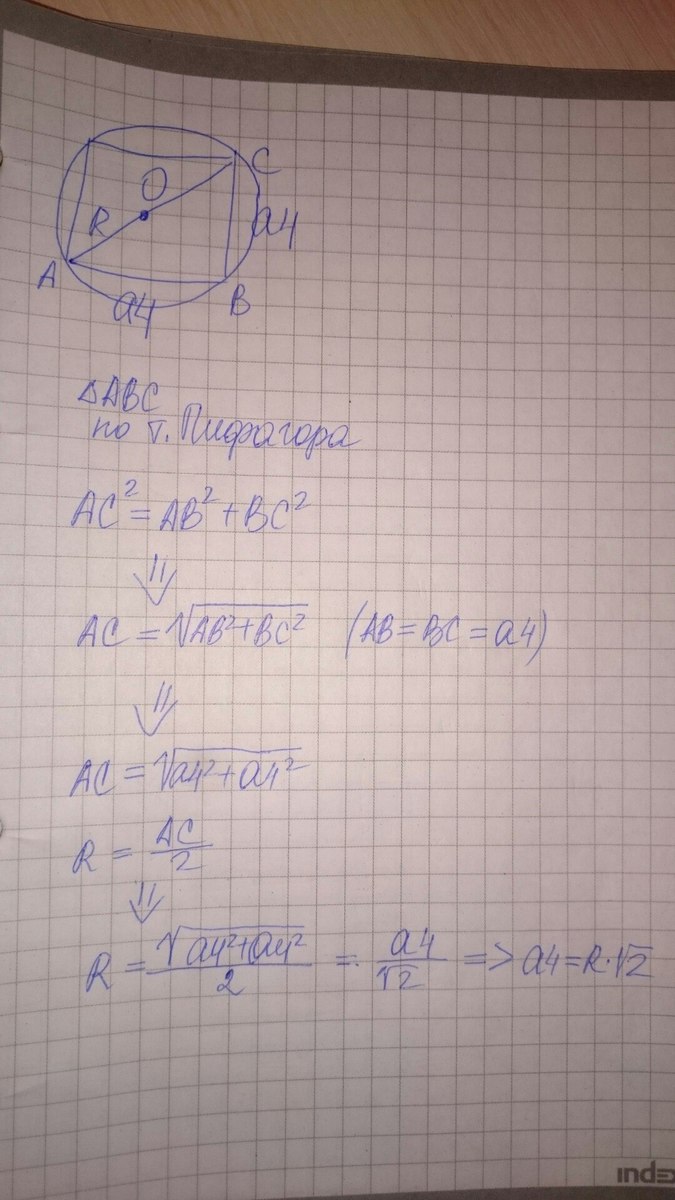 C
O
R
a4
A
B
a4
△ABC
по т. Пифагора
AC² = AB² + BC²
⇓
AC = √(AB²+BC²) (AB = BC = a4)
⇓
AC = √(a4²+a4²)
R = AC/2
⇓
R = √(a4²+a4²)/2 = a4/√2 => a4 = R·√2
index